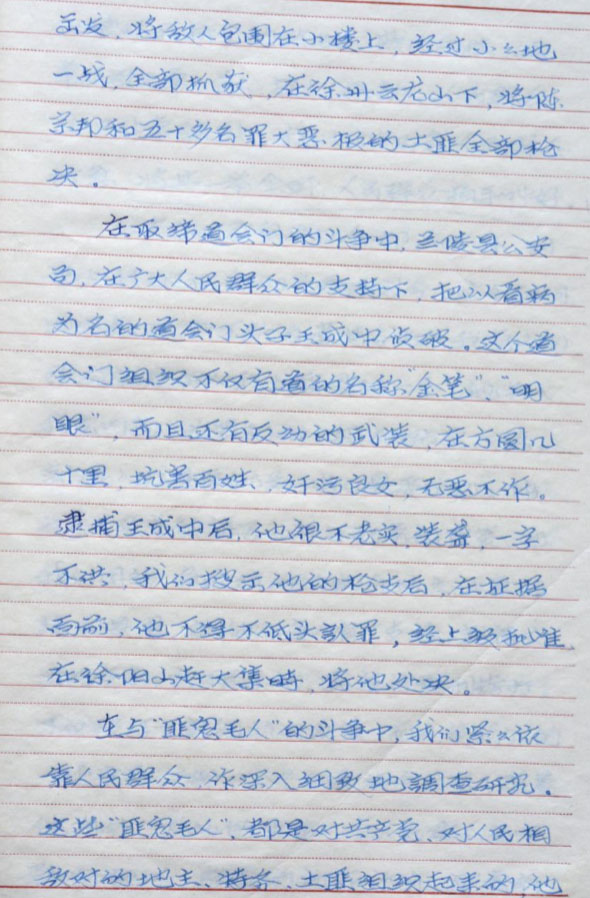 出发，将敌人包围在小楼上，经过小小地
一战，全部抓获，在徐州云龙山下，将陈
宗邦和五十多名罪大恶极的土匪全部枪
决。
在取缔道会门的斗争中，兰陵县公安
局，在广大人民群众的支持下，把以看病
为名的道会门头子王成中侦破。这个道
会门组织不仅有道的名称“金笔”、“明
眼”，而且还有反动的武装，在方圆几
十里，坑害百姓，奸污良女，无恶不作。
逮捕王成中后，他很不老实，装聋，一字
不供，我们搜出他的枪支后，在证据
面前，他不得不低头認罪，经上级批准
在徐阳山赶大集時，将他处决。
在与“匪鬼毛人”的斗争中，我们紧紧依
靠人民群众，作深入细致地調查研究。
这些“匪鬼毛人”，都是对共产党、对人民相
敌对的地主、特务、土匪组织起来的，他